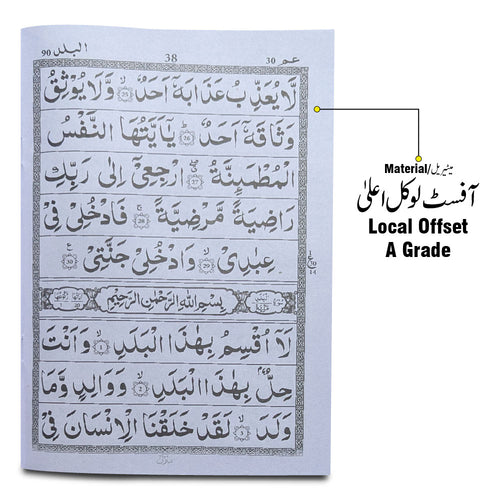 عم 30
38
البلد 90
لَّا يُعَذِّبُ عَذَابَهٗۤ اَحَدٌ ﴿25﴾ وَّلَا يُوْثِقُ
وَثَاقَهٗۤ اَحَدٌ ﴿26﴾ يٰۤاَيَّتُهَا النَّفْسُ
الْمُطْمَئِنَّةُ ﴿27﴾ ارْجِعِيْۤ اِلٰى رَبِّكِ
رَاضِيَةً مَّرْضِيَّةً ﴿28﴾ فَادْخُلِيْ فِيْ
عِبٰدِيْ ﴿29﴾ وَادْخُلِيْ جَنَّتِيْ ﴿30﴾
بِسْمِ اللهِ الرَّحْمٰنِ الرَّحِيْمِ
لَاۤ اُقْسِمُ بِهٰذَا الْبَلَدِ ﴿1﴾ وَاَنْتَ
حِلٌّۢ بِهٰذَا الْبَلَدِ ﴿2﴾ وَوَالِدٍ وَّمَا
وَلَدَ ﴿3﴾ لَقَدْ خَلَقْنَا الْاِنْسَانَ فِيْ
Material/میٹیریل
آفسٹ لوکل اعلیٰ
Local Offset
A Grade